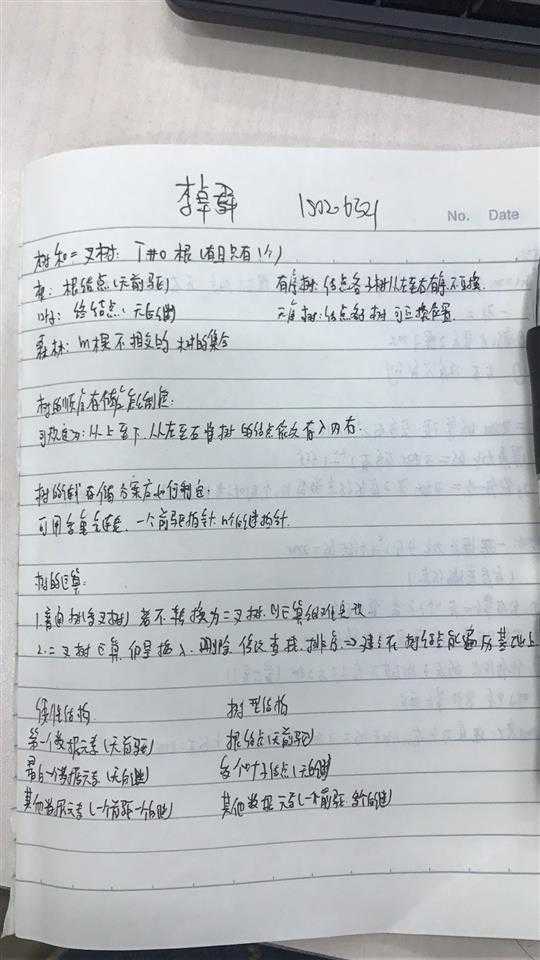 李卓舜 15020321
No. Date
树和二叉树: T#0 根(有且只有1个)
根: 根结点(无前驱) 有序树:结点各子树从左至右有序,不可互换
叶子: 终端结点(无后继) 无序树:结点各子树可互换位置
森林: m棵不相交的树的集合
树的顺序存储
可规定为:从上至下,从左至右将树的结点依次存入内存.
树的链式存储方案应如何制定.
可用多重链表: 一个前驱指针,n个后继指针.
树的运算:
1.普通树(多叉树)若不转换为二叉树,则运算很难实现
2.二叉树运算仍是插入,删除,修改,查找,排序.⇒建立在树结点能遍历基础上
线性结构 树型结构
第一个数据元素(无前驱) 根结点(无前驱)
最后一个数据元素(无后继) 多个叶子结点(无后继)
其他数据元素(一个前驱一个后继) 其他数据元素(一个前驱,多个后继)